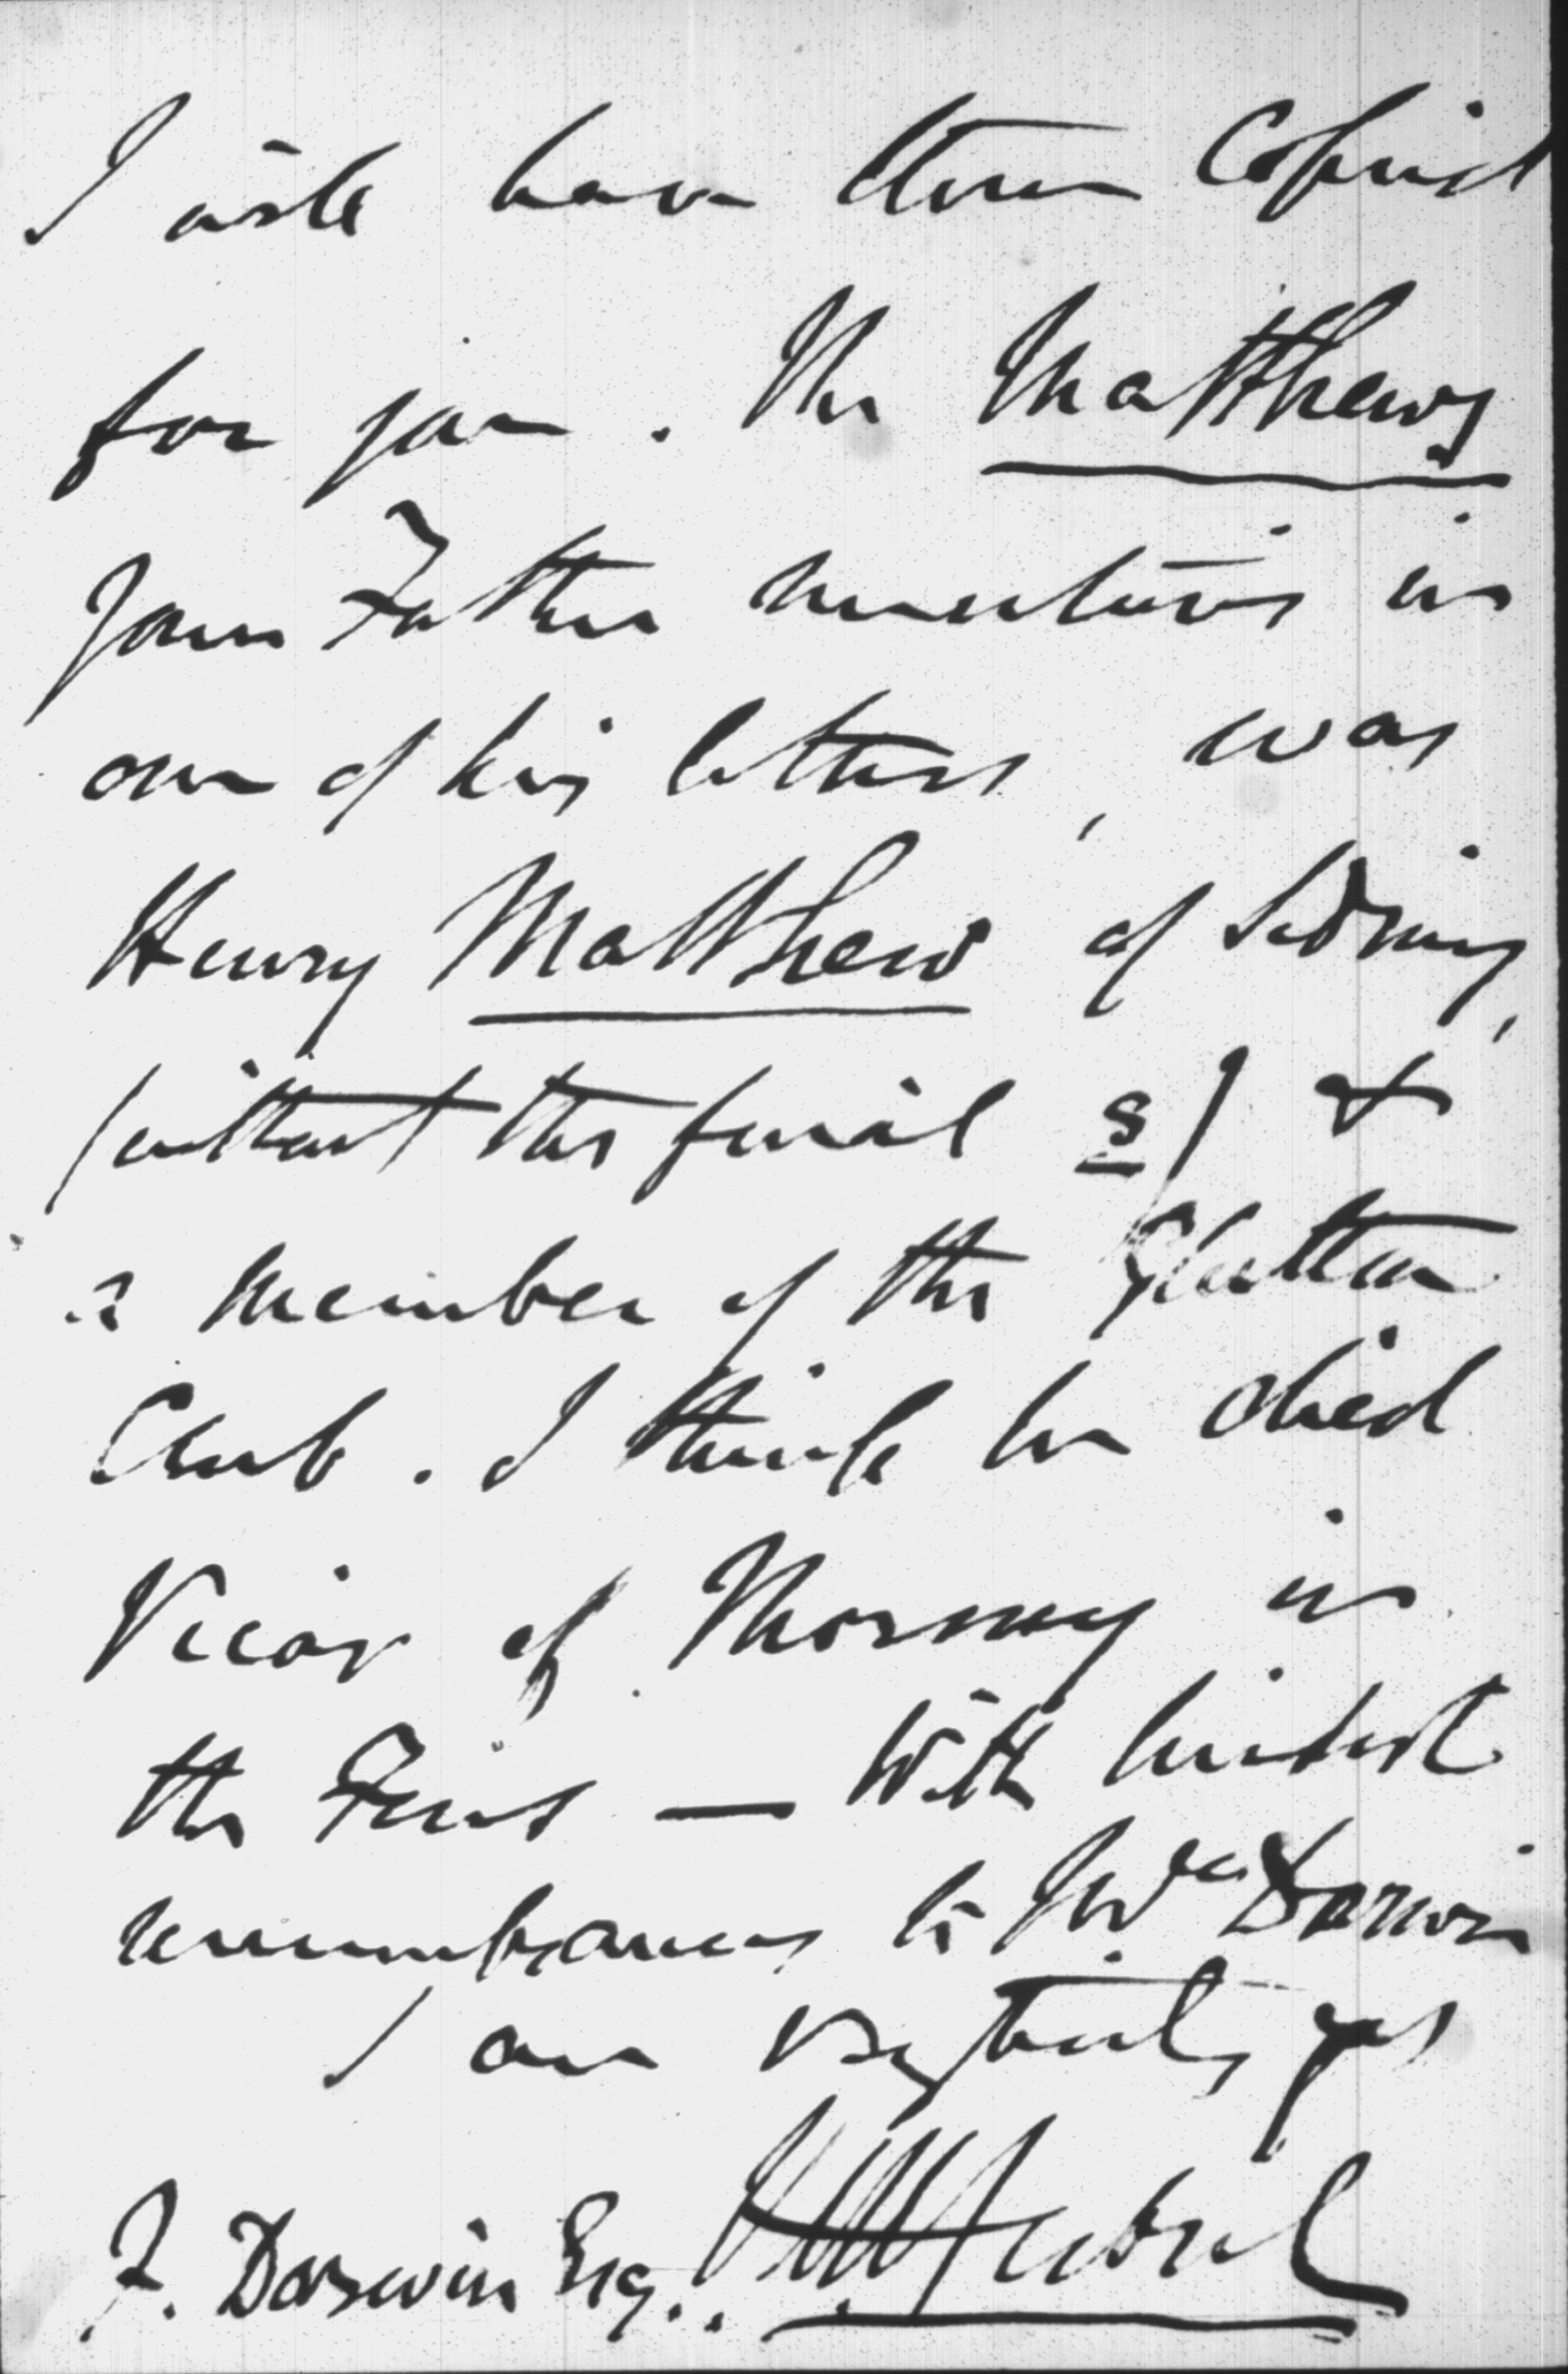 I will have them Copied
for you. The Matthews
your Father mentions in
one of his letters, was
Henry Matthew of Sidney,
(without the final s) &
a member of the Glutton
Club. I think he died
Vicar of in
the Fens — With kindest
remembrances to Mrs Darwin
I am very truly yrs
F. Darwin Esq.